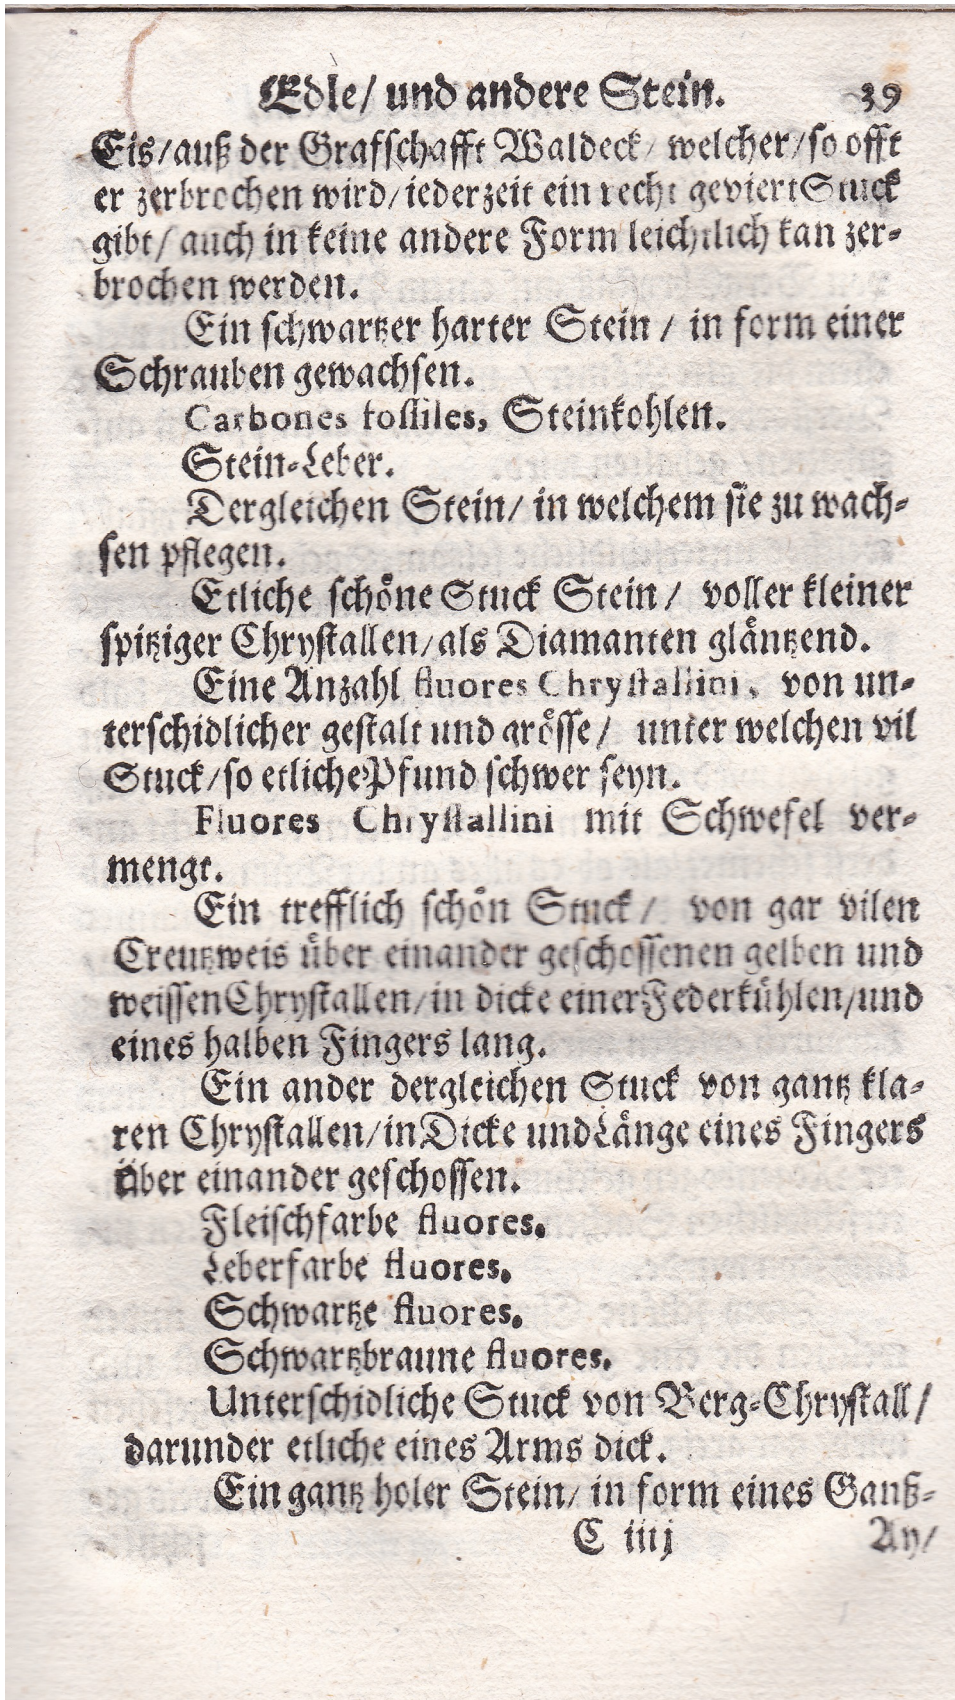 Edle/ und andere Stein. 39
Eis/auß der Grafschafft Waldeck/ welcher/so offt
er zerbrochen wird/iederzeit ein recht geviert Stuck
gibt/ auch in keine andere Form leichtlich kan zer-
brochen werden.
Ein schwartzer harter Stein / in form einer
Schrauben gewachsen.
Carbones fossiles, Steinkohlen.
Stein-Leber.
Dergleichen Stein/ in welchem sie zu wach-
sen pflegen.
Etliche schöne Stuck Stein/ voller kleiner
spitziger Chrystallen/als Diamanten gläntzend.
Eine Anzahl fluores Chrystallini, von un-
terschidlicher gestalt und grösse/ unter welchen vil
Stuck/so etliche Pfund schwer seyn.
Fluores Chrystallini mit Schwefel ver-
mengt.
Ein trefflich schön Stuck/ von gar vilen
Creutzweis über einander geschossenen gelben und
weissen Chrystallen/in dicke einer Federkühlen/und
eines halben Fingers lang.
Ein ander dergleichen Stuck von gantz kla-
ren Chrystallen/in Dicke und Länge eines Fingers
über einander geschossen.
Fleischfarbe fluores.
Leberfarbe fluores.
Schwartze fluores.
Schwartzbraune fluores.
Unterschidliche Stuck von Berg-Chrystall/
darunder etliche eines Arms dick.
Ein gantz holer Stein/ in form eines Ganß-
C iiij Ay/